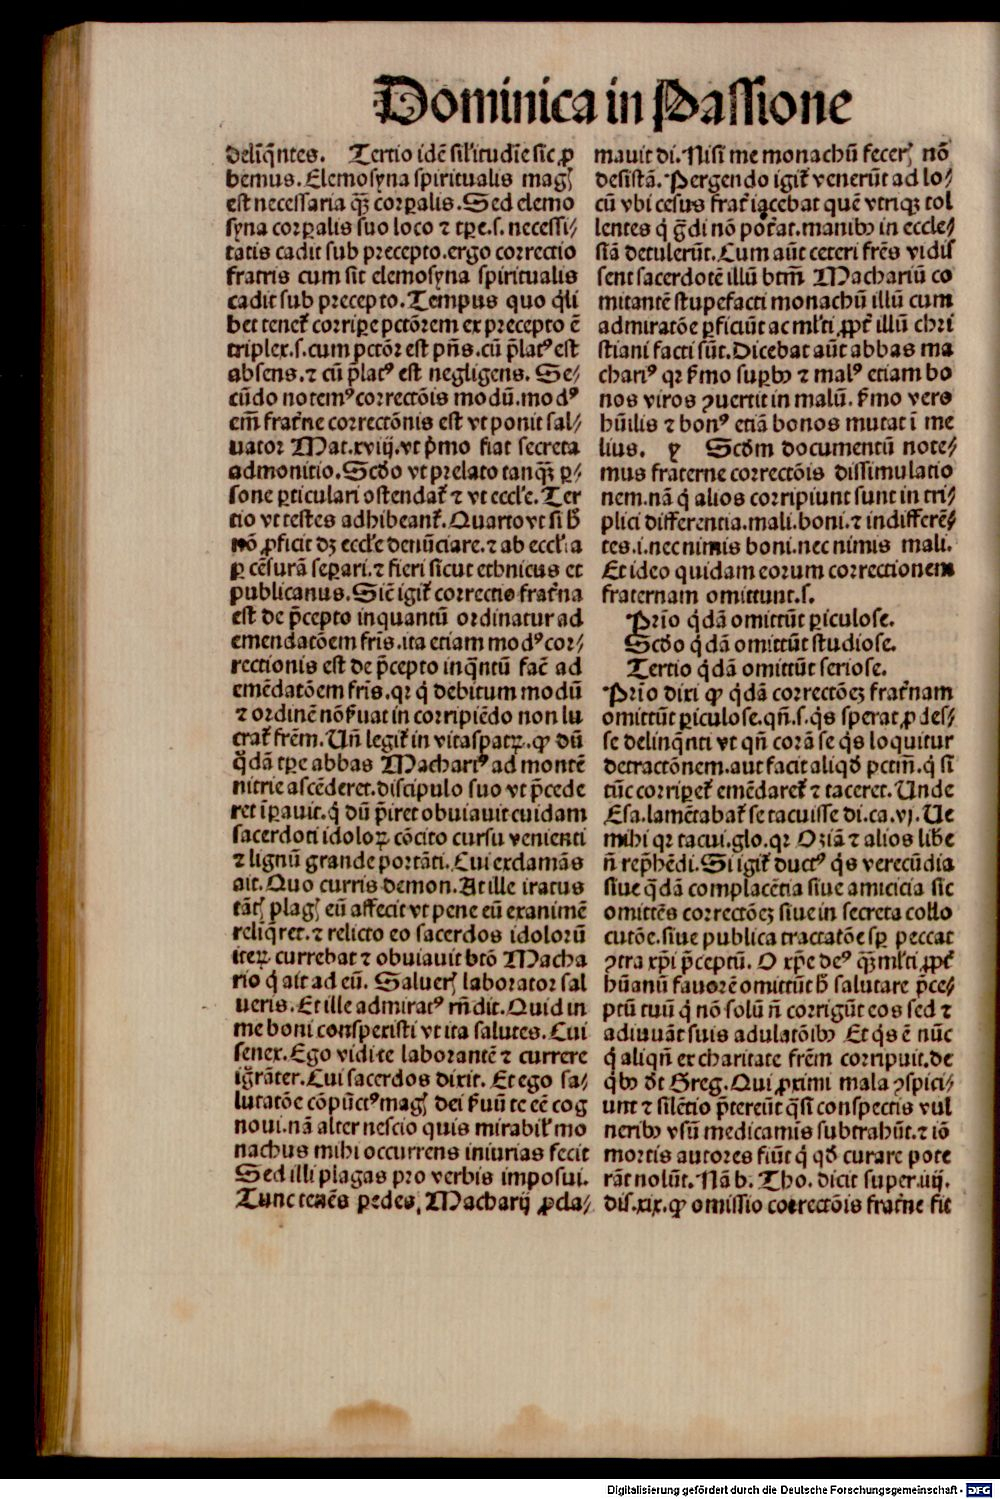 Dominica in Passione
delīq̄ntes. Tertio idē sil'itudīe sic ꝓ
bemus. Elemosyna spiritualis magꝭ
est necessaria qꝫ corꝑalis. Sed elemo
syna corꝑalis suo loco ⁊ tꝑe.s. necessi-
tatis cadit sub precepto. ergo correctio
fratris cum sit elemosyna spiritualis
cadit sub precepto. Tempus quo q̇li
bet tenet̉ corriꝑe pctōrem ex precepto ē
triplex.s. cum pctōr est pn̄s. cū p̄latꝰ est
absens. ⁊ cū p̄latꝰ est negligens. Se-
cūdo notemꝰ correctōis modū. modꝰ
em̄ frat̉ne correctōnis est vt ponit sal-
uator Mat.xviij. vt ṗmo fiat secreta
admonitio. Scd̓o vt prelato tanqꝫ ꝑ-
sone ꝑticulari ostendat̉ ⁊ vt eccl'e. Ter
tio vt testes adhibeant̉. Quarto vt si h̄
nō ꝓficit dꝫ eccl'e denūciare. ⁊ ab eccl'ia
ꝑ cēsurā seꝑari. ⁊ fieri sicut ethnicus et
publicanus. Sic igit̉ correctio frat̉na
est de p̄cepto inquantū ordinatur ad
emendatōem fr̄is. ita etiam modꝰ cor-
rectionis est de p̄cepto inq̄ntū fac̄ ad
emēdatōem fr̄is. qꝛ q̇ debitum modū
⁊ ordinē nō s̓uat in corripiēdo non lu
crat̉ fr̄em. Un̄ legit̉ in vitaspatꝝ. ꝙ dū
q̄dā tꝑe abbas Machariꝰ ad montē
nitrie ascēderet. discipulo suo vt p̄cede
ret īꝑauit. q̇ dū p̄iret obuiauit cuidam
sacerdoti idoloꝝ cōcito cursu venienti
⁊ lignū grande portāti. Cui exclamās
ait. Quo curris demon. At ille iratus
tātꝭ plagꝭ eū affecit vt pene eū exanimē
reliq̄ret. ⁊ relicto eo sacerdos idolorū
iteꝝ currebat ⁊ obuiauit btō Macha
rio q̇ ait ad eū. Salueꝭ laborator sal
ueris. Et ille admiratꝰ rn̄dit. Quid in
me boni conspexisti vt ita salutes. Cui
senex. Ego vidi te laborantē ⁊ currere
ig̓rāter. Cui sacerdos dixit. Et ego sa-
lutatōe cōpūctꝰ magꝭ dei s̓uū te eē cog
noui. nā alter nescio quis mirabil' mo
nachus mihi occurrens iniurias fecit
Sed illi plagas pro verbis imposui.
Tunc tenēs pedes Macharij ꝓcla-
mauit di. Nisi me monachū feceꝭ nō
desistā. Pergendo igit̉ venerūt ad lo-
cū vbi cesus frat̉ iacebat quē vtriqꝫ tol
lentes q̇ g̓di nō pot̓at. manibꝰ in eccle-
siā detulerūt. Cum aūt ceteri fr̄es vidis
sent sacerdotē illū btm̄ Machariū co
mitantē stupefacti monachū illū cum
admiratōe ꝑficiūt ac ml'ti ꝓpt̉ illū chri
stiani facti sūt. Dicebat aūt abbas ma
chariꝰ qꝛ s̓mo suꝑbꝰ ⁊ malꝰ etiam bo
nos viros ꝯuertit in malū. s̓mo vero
hūilis ⁊ bonꝰ etiā bonos mutat ī me
lius. ¶ Scd̓m documentū note-
mus fraterne correctōis dissimulatio
nem. nā q̇ alios corripiunt sunt in tri-
plici differentia. mali. boni. ⁊ indifferē-
tes.i. nec nimis boni. nec nimis mali.
Et ideo quidam eorum correctionem
fraternam omittunt.s.
Prīo q̇dā omittūt ꝑiculose.
Scd̓o q̇dā omittūt studiose.
Tertio q̇dā omittūt seriose.
Prīo dixi ꝙ q̇dā correctōeꝫ frat̉nam
omittūt ꝑiculose. qn̄.s. q̇s sperat ꝓdes-
se delinq̄nti vt qn̄ corā se q̇s loquitur
detractōnem. aut facit aliqd̓ pctm̄. q̇ si
tūc corriꝑet̉ emēdaret̉ ⁊ taceret. Unde
Esa. lamētabat̉ se tacuisse di.ca.vj. Ue
mihi qꝛ tacui. glo. qꝛ Oziā ⁊ alios libe
n̄ rep̄hēdi. Si igit̉ ductꝰ q̇s verecūdia
siue q̄dā complacētia siue amicicia sic
omittēs correctōeꝫ siue in secreta collo
cutōe. siue publica tractatōe sꝑ peccat
ꝯtra xp̄i p̄ceptū. O xp̄e deꝰ qꝫ ml'ti ꝓpt̉
hūanū fauorē omittūt h̄ salutare p̄ce-
ptū tuū q̇ nō solū n̄ corrigūt eos sed ⁊
adiuuāt suis adulatōibꝰ Et q̇s ē nūc
q̇ aliqn̄ ex charitate fr̄em corripuit. de
q̇bꝰ d̓t Greg. Qui ꝓximi mala ꝯspici-
unt ⁊ silētio p̄tereūt q̄si conspectis vul
neribꝰ vsū medicamīs subtrahūt. ⁊ iō
mortis autores fiūt q̇ qd̓ curare pote
rāt nolūt. Nā b. Tho. dicit super.iiij.
dis.xix. ꝙ omissio correctōis frat̉ne fit
Digitalisierung gefördert durch die Deutsche Forschungsgemeinschaft - DFG